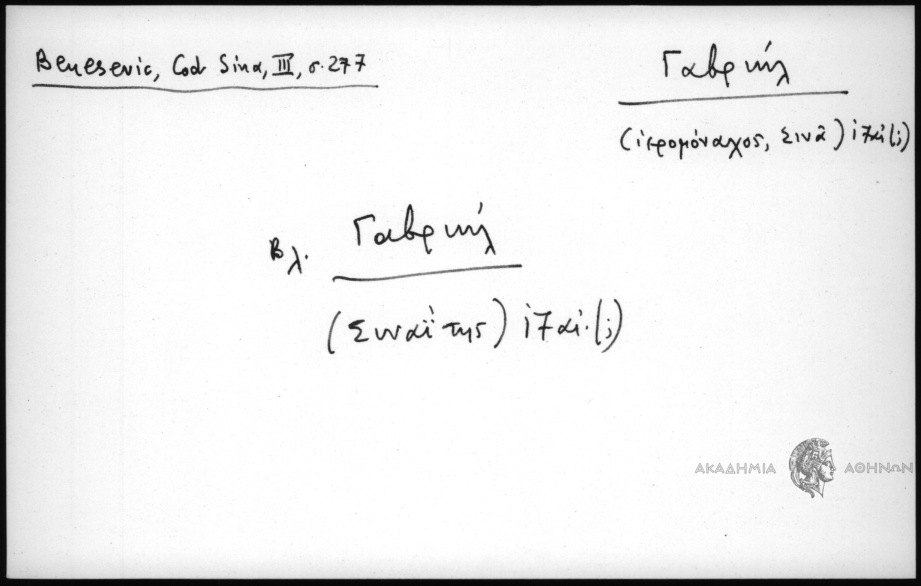 Benesevic, Cod Sina, III, σ. 277
Γαβριήλ
(ἱερομόναχος, Σινᾶ) ι7 αἰ(;)
Βλ. Γαβριήλ
(Σιναΐτης) ι7 αἰ.(;)
ΑΚΑΔΗΜΙΑ ΑΘΗΝΩΝ